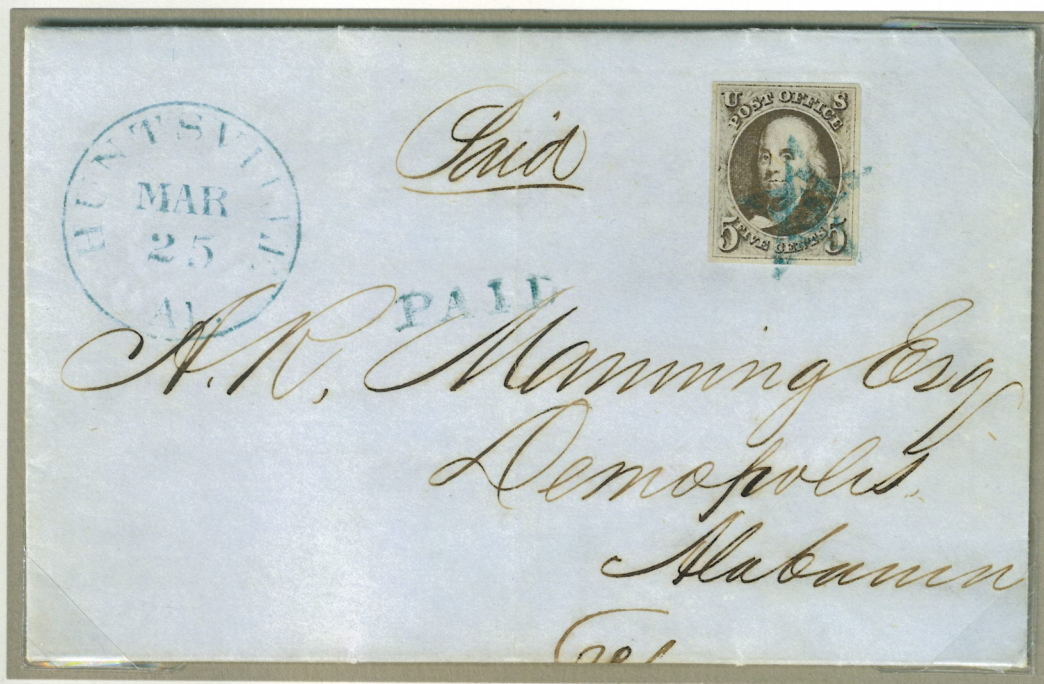 HUNTSVILLE
MAR
25
Al.
Paid
U S
POST OFFICE
5 FIVE CENTS 5
PAID
A. R. Manning Esq
Demopolis
Alabama